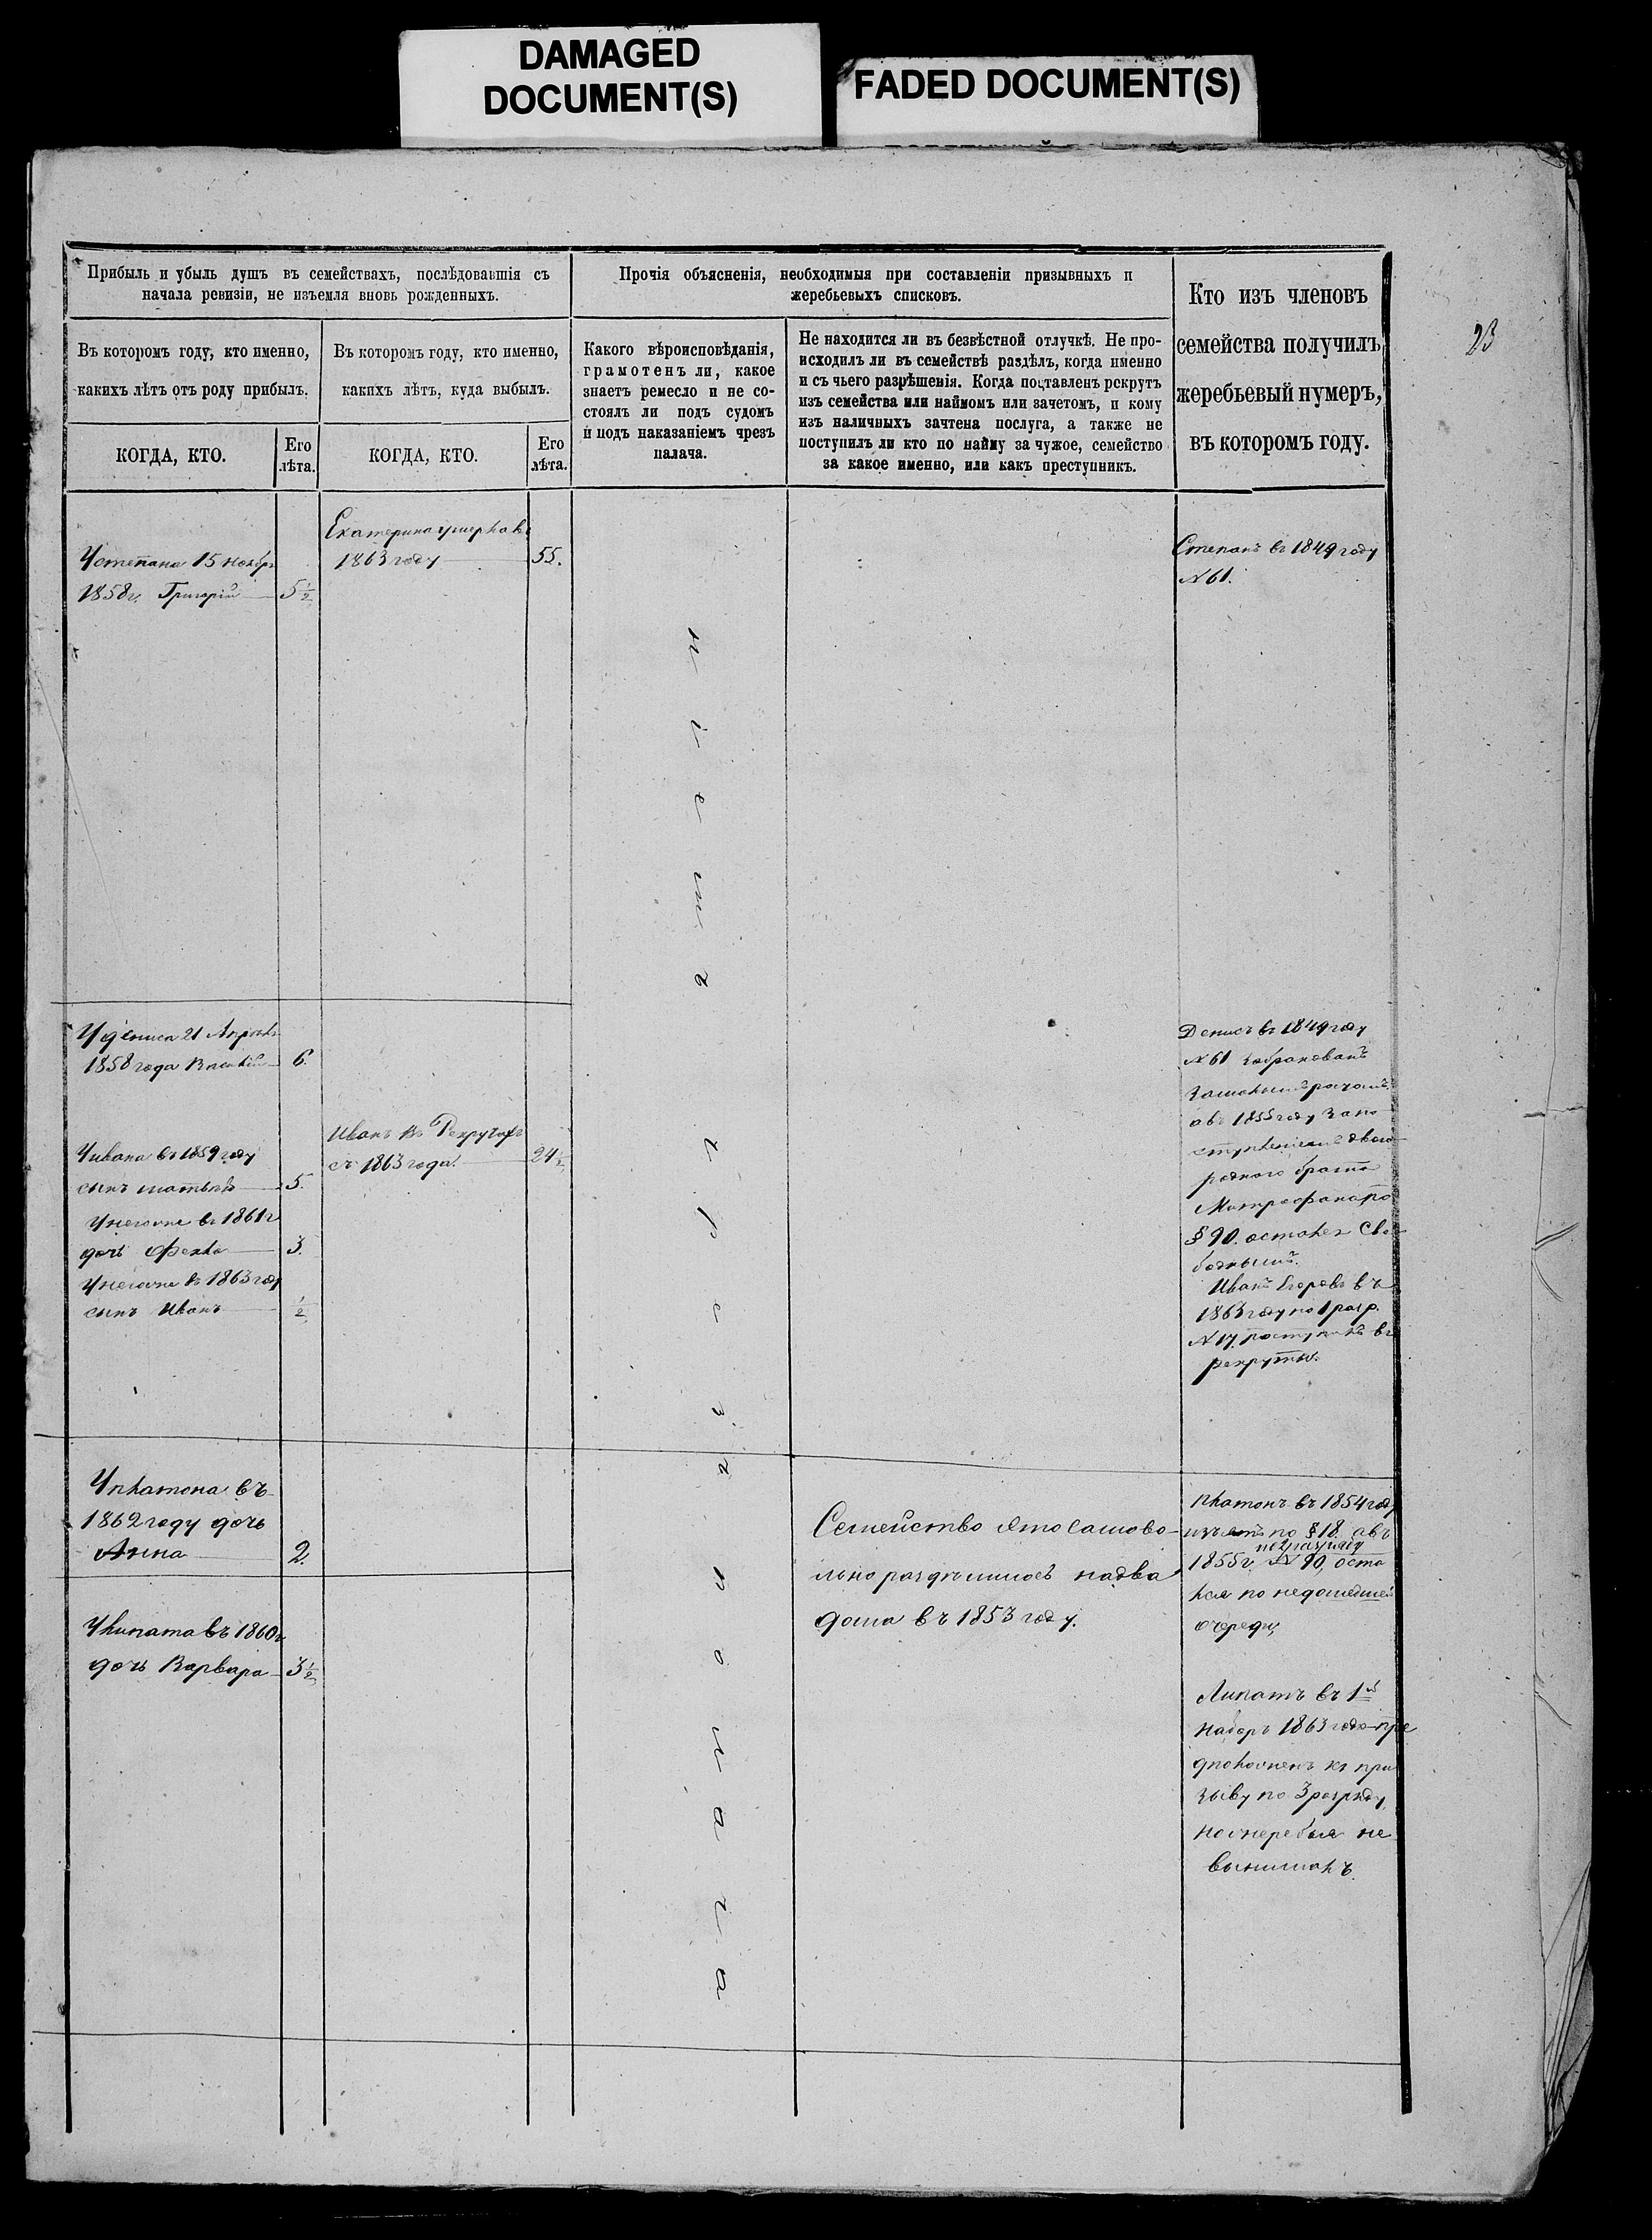 DAMAGED
DOCUMENT(S)
FADED DOCUMENT(S)
23
Прибыль и убыль душъ въ семействахъ, послѣдовавшія съ
начала ревизіи, не изъемля вновь рожденныхъ.
Прочія объясненія, необходимыя при составленіи призывныхъ и
жеребьевыхъ списковъ.
Кто изъ членовъ
семейства получилъ
жеребьевый нумеръ,
въ которомъ году.
Въ которомъ году, кто именно,
какихъ лѣтъ отъ роду прибылъ.
Въ которомъ году, кто именно,
какихъ лѣтъ, куда выбылъ.
Какого вѣроисповѣданія,
грамотенъ ли, какое
знаетъ ремесло и не со-
стоялъ ли подъ судомъ
и подъ наказаніемъ чрезъ
палача.
Не находится ли въ безвѣстной отлучкѣ. Не про-
исходилъ ли въ семействѣ раздѣлъ, когда именно
и съ чьего разрѣшенія. Когда поставленъ рекрутъ
изъ семейства или наймомъ или зачетомъ, и кому
изъ наличныхъ зачтена послуга, а также не
поступилъ ли кто по найму за чужое, семейство
за какое именно, или какъ преступникъ.
КОГДА, КТО.
Его
лѣта.
КОГДА, КТО.
Его
лѣта.
Устепана 15 ноябр
1858г. Григорій 5½
Екатерина умерла въ
1863 году 55.
Степанъ въ 1849 году
№ 61.
Удениса 21 Апрѣль
1858 года Василій 6.
Уивана въ 1859 году
сынъ матвѣй 5.
Унегоже въ 1861г
дочь Фекла 3.
Унегоже въ 1863 году
сынъ Иванъ ½
Иванъ въ Рекрутахъ
съ 1863 года. 24½
Денисъ въ 1849 году
№ 61 забракованъ
авъ 1855 году за по
ступленіемъ двою
роднаго брата
Митрофана по
§ 90. остался Сво
боднымъ.
Иванъ Егоровъ въ
1863 году по 1 разр.
№ 17. поступилъ въ
рекруты.
Уплатона въ
1862 году дочь
Анна 2.
Улипата въ 1860г
дочь Варвара 3½
Семейство это самово-
льно раздѣлилось надва
дома въ 1853 году.
Платонъ въ 1854 году
изъятъ по § 18. авъ
1855г. № 90, оста
лся по недошедшей
очереди,
Липатъ въ 1й
наборъ 1863 года пре
дположенъ къ при
зыву по 3 разряду,
ножеребья не
вынималъ.